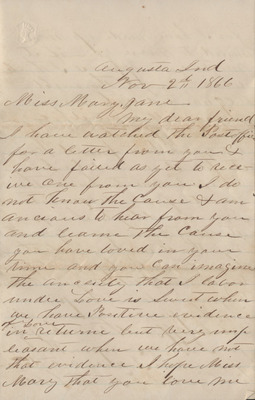 Augusta Ind
Nov 2th 1866
Miss Mary, Jane
My dear friend
I have watched the Post office
for a letter from you &
have failed as yet to rece-
ive one from you I do
not know the Cause & am
anceous to hear from you
and learne The Cause
you have loved in your
time and you Can imagine
the that I labor
under Love is Sweet when
we have Positive evidence
of Love
in returne but very unp
leasant when we have not
that evidence I hope Miss
Mary that you love me